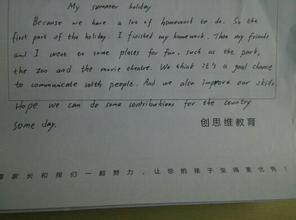 My summer holiday
Because we have a lot of homework to do. So the
first part of the holiday. I finished my homework. Then my friends
and I went to some places for fun, such as the park,
the zoo and the movie theatre. We think it's a good chance
to communicate with people. And we also improve our skills.
Hope we can do some contributions for the country
some day.
创思维教育
家长和我们一起努力，让你的孩子变得更优秀！